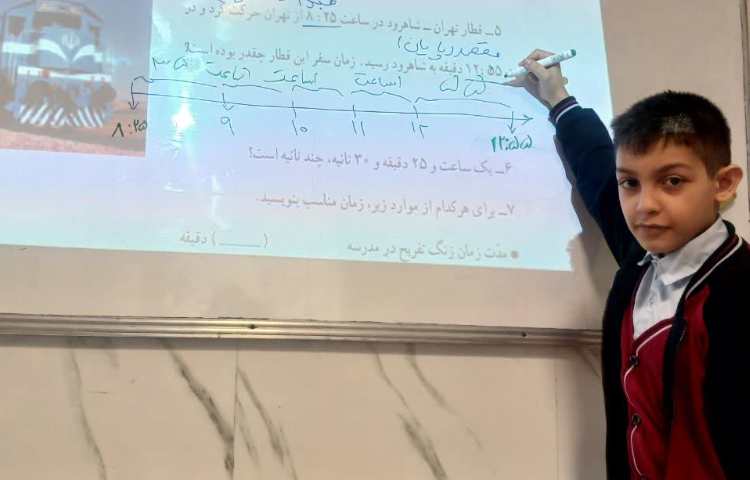 ۵ـ قطار تهران ـ شاهرود در ساعت ۸:۲۵ از تهران حرکت کرد و در
مقصد (پایان)
۱۲:۵۵ دقیقه به شاهرود رسید. زمان سفر این قطار چقدر بوده است؟
۳۵ ۱ساعت ۱ساعت ۱ساعت ۵۵
۸:۲۵ ۹ ۱۰ ۱۱ ۱۲ ۱۲:۵۵
۶ـ یک ساعت و ۲۵ دقیقه و ۳۰ ثانیه، چند ثانیه است؟
۷ـ برای هرکدام از موارد زیر، زمان مناسب بنویسید.
● مدّت زمان زنگ تفریح در مدرسه (_____) دقیقه